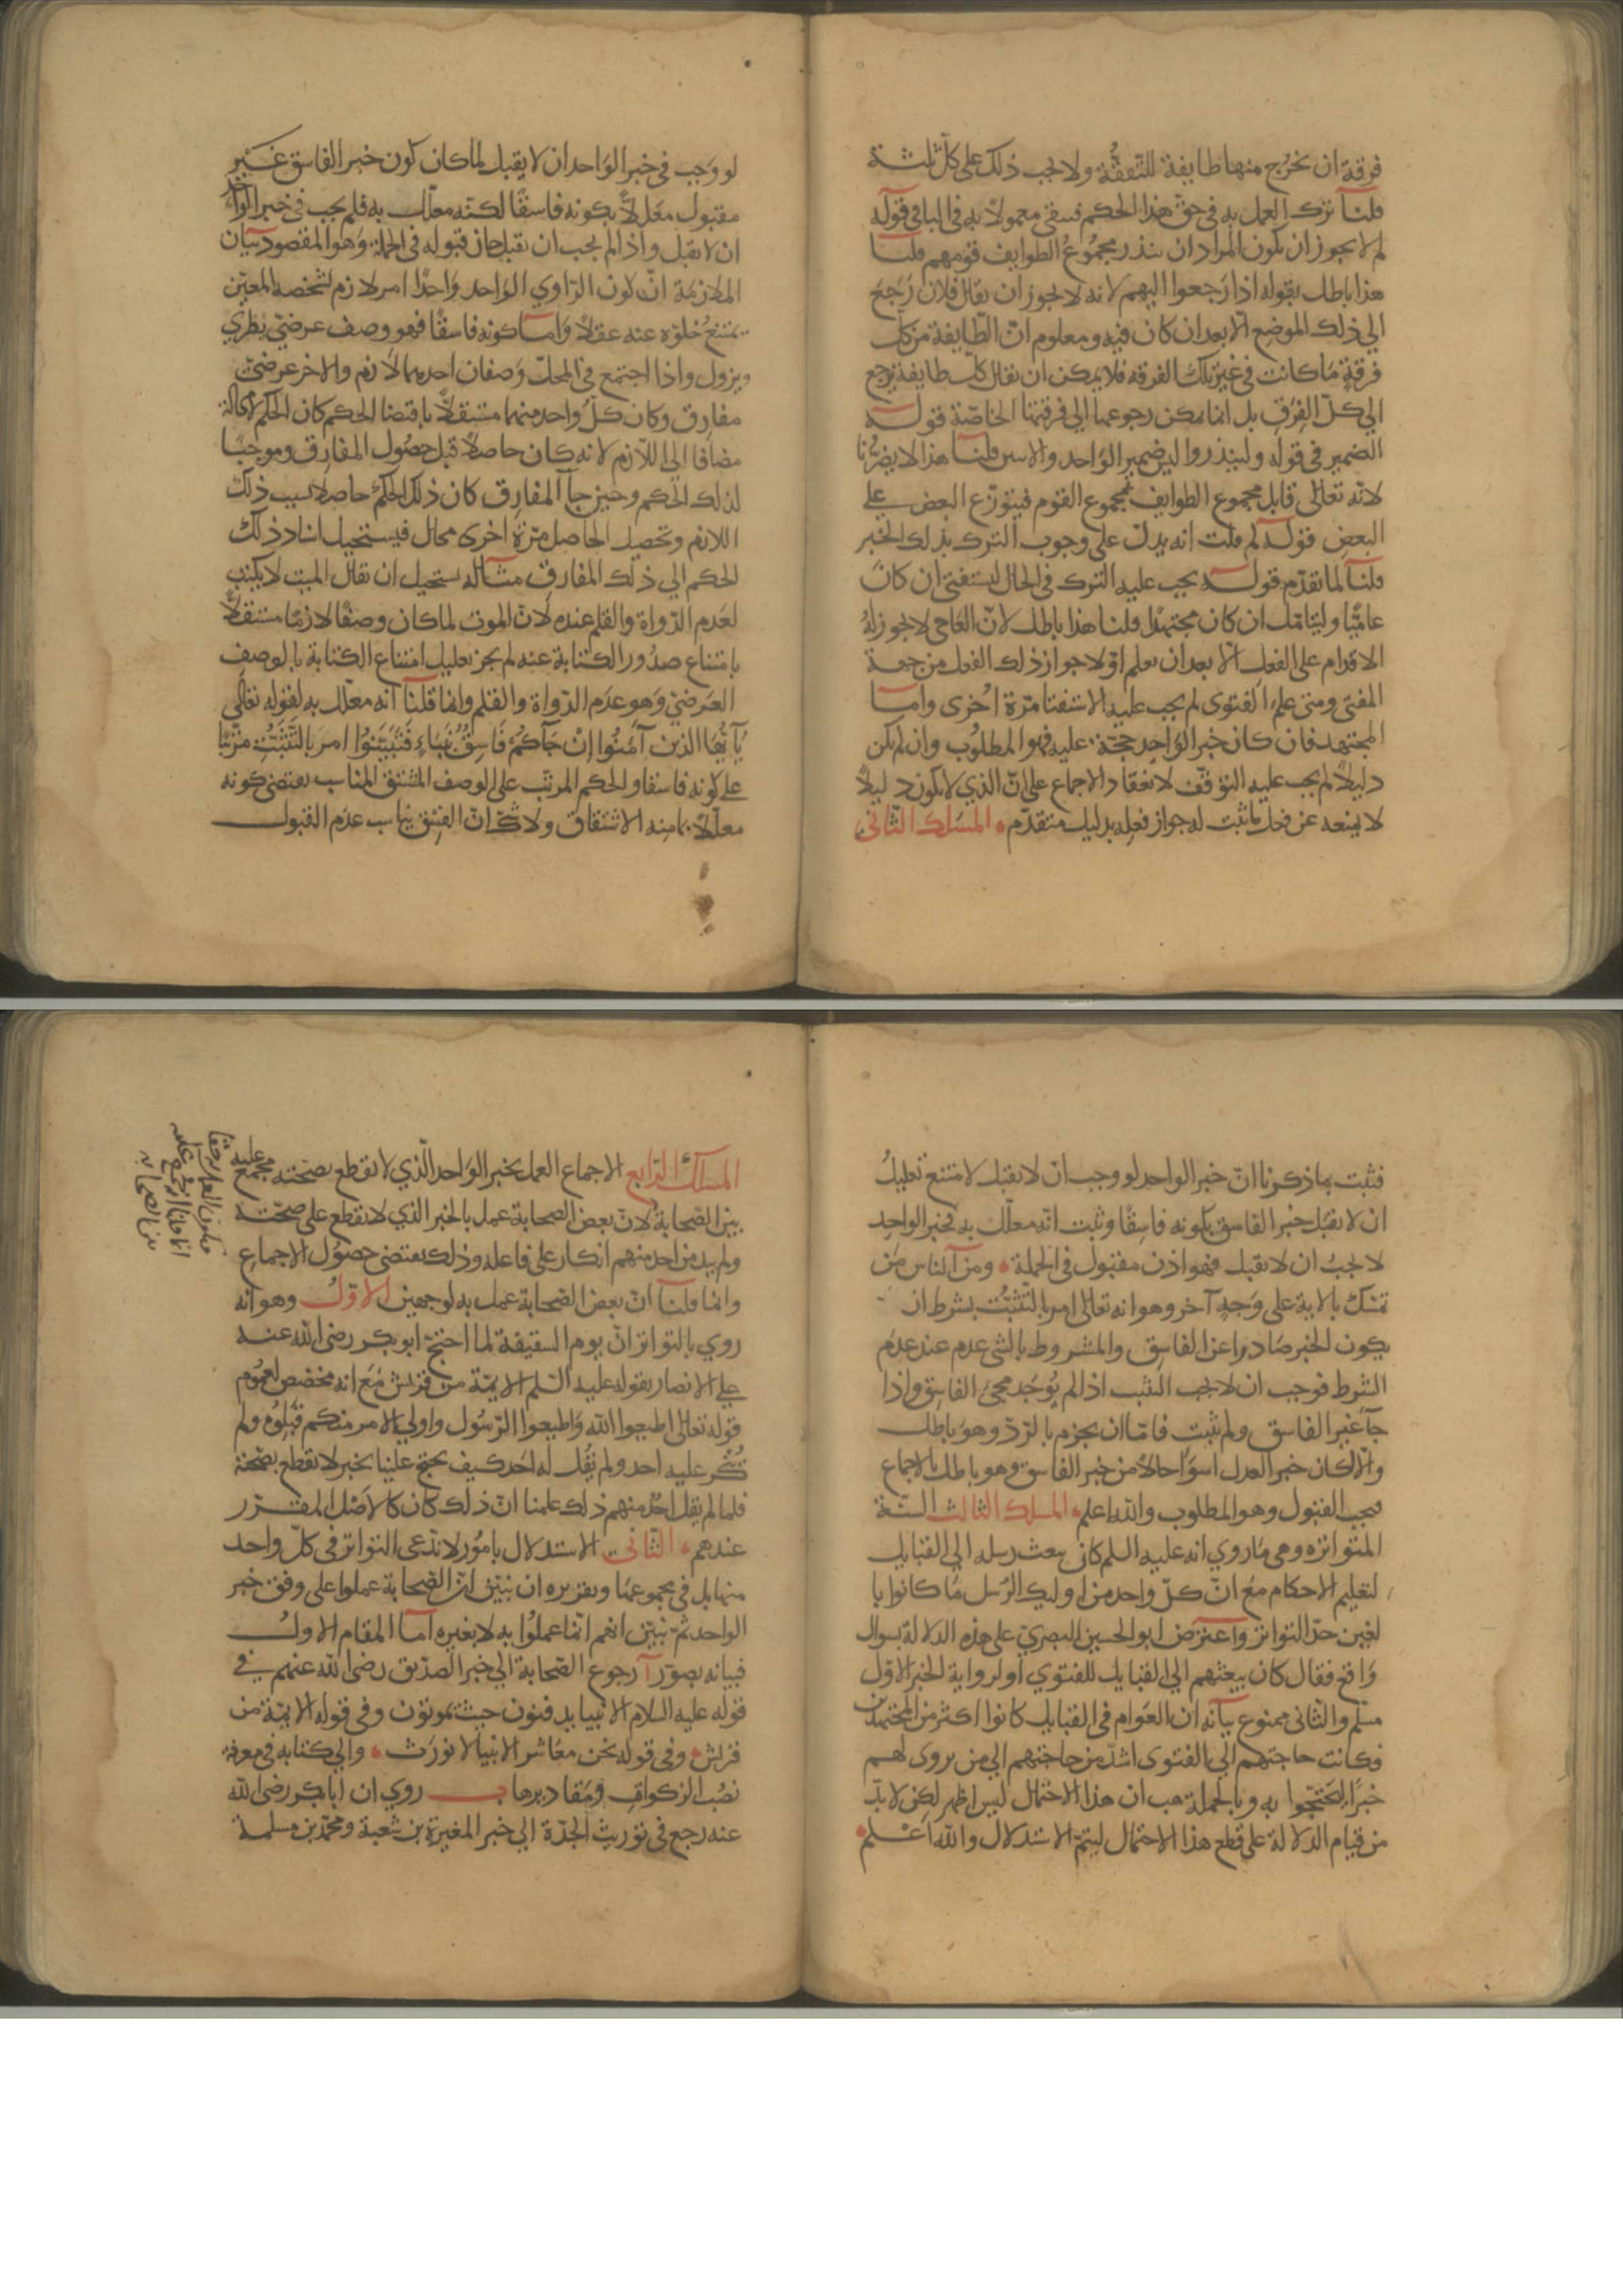 فرقة ان تخرج منها طايفة للتفقه ولا يجب ذلك على كل ثلثة
قلنا ترك العمل به في حق هذا الحكم فيبقى معمولا به في الباقي قوله
لم لا يجوز ان يكون المراد ان ينذر مجموع الطوايف قومهم قلنا
هذا باطل بقوله اذا رجعوا اليهم لانه لا يجوز ان يقال فلان رجع
الي ذلك الموضع الا بعد ان كان فيه ومعلوم انّ الطايفة من كل
فرقة ما كانت في غير تلك الفرقه فلا يمكن ان يقال كل طايفة ترجع
الي كل الفرق بل انما يمكن رجوعها الي فرقتها الخاصّة قوله
الضمير في قوله ولينذروا ليس ضمير الواحد والاثنين قلنا هذا لا يضرنا
لانه تعالى قابل مجموع الطوايف بمجموع القوم فيتوزع البعض علي
البعض قوله لم قلت انه يدل على وجوب الترك بذلك الخبر
قلنا لما تقدم قوله يجب عليه الترك في الحال ليستفتي ان كان
عاميّا وليتامّل ان كان مجتهدًا قلنا هذا باطل لانّ العامي لا يجوز له
الاقدام على الفعل الا بعد ان يعلم او لا جواز ذلك الفعل من جهة
المفتي ومتى علم الفتوى لم يجب عليه الاستفتا مرّة اخرى وامّا
المجتهد فان كان خبر الواحد حجّة عليه فهو المطلوب وان لم يكن
دليلاً لم يجب عليه التوقف لانعقاد الاجماع على انّ الذي لا يكون دليلاً
لا يمنعه عن فعل ما ثبت له جواز فعله بدليل متقدّم المسلك الثاني
لو وجب في خبر الواحد ان لا يقبل لما كان كون خبر الفاسق غير
مقبول معللاً بكونه فاسقًا لكنّه معلّل به فلم يجب في خبر الواحد
ان لا يقبل واذا لم يجب ان يقبل جاز قبوله في الجملة وهو المقصود بيان
الملازمة انّ كون الراوي الواحد واحدًا امر لازم لشخصه المعيّن
يمتنع خلوّه عنه عقلاً وامّا كونه فاسقًا فهو وصف عرضيّ يطري
ويزول واذا اجتمع في المحلّ وصفان احدهما لازم والاخر عرضيّ
مفارق وكان كل واحد منهما مستقلاًّ باقتضا الحكم كان الحكم لا محالة
مضافا الي اللازم لانه كان حاصلاً قبل حصول المفارق وموجبًا
لذلك الحكم وحين جآ المفارق كان ذلك الحكم حاصلا بسبب ذلك
اللازم وتحصيل الحاصل مرّة اخرى محال فيستحيل اسناد ذلك
الحكم الي ذلك المفارق مثاله يستحيل ان يقال الميت لا يكتب
لعدم الدواة والقلم عنده لانّ الموت لما كان وصفًا لازمًا مستقلاًّ
بامتناع صدور الكتابة عنه لم يجز تعليل امتناع الكتابة بالوصف
العرضيّ وهو عدم الدّواة والقلم وانما قلنا انه معلّل به لقوله تعالي
يآ ايها الذين آمنوا ان جآكم فاسق بنباءٍ فتبيّنوا امر بالتثبّت مرتبًا
على كونه فاسقا والحكم المرتب على الوصف المشتق المناسب يقتضي كونه
معلّلاً بما منه الاشتقاق ولا شكّ انّ الفسق يناسب عدم القبول
فثبت بما ذكرنا انّ خبر الواحد لو وجب ان لا يقبل لامتنع تعليل
ان لا يقبل خبر الفاسق بكونه فاسقًا وثبت انّه معلّل به فخبر الواحد
لا يجب ان لا يقبل فهو اذن مقبول في الجملة ومن الناس من
تمسّك بالاية على وجهٍ آخر وهو انه تعالى امر بالتثبت بشرط ان
يكون الخبر صادرا عن الفاسق والمشروط بالشي عدم عند عدم
الشرط فوجب ان لا يجب التثبت اذا لم يوجد مجي الفاسق واذا
جآ غير الفاسق ولم يثبت فامّا ان يجزم بالردّ وهو باطل
والا لكان خبر العدل اسوأ حالا من خبر الفاسق وهو باطل بالاجماع
فيجب القبول وهو المطلوب والله اعلم المسلك الثالث السنّة
المتواترة وهي ما روي انه عليه السلم كان يبعث رسله الي القبايل
لتعليم الاحكام مع انّ كل واحد من اوليك الرسل ما كانوا با
لغين حدّ التواتر واعترض ابو الحسين البصري على هذه الدلالة بسوال
واقع فقال كان يبعثهم الي القبايل للفتوي او لرواية الخبر الاول
مسلّم والثاني ممنوع بيانه ان العوام في القبايل كانوا اكثر من المجتهدين
فكانت حاجتهم الي الفتوى اشدّ من حاجتهم الي من يروي لهم
خبرًا ليحتجّوا به وبالجملة هب ان هذا الاحتمال ليس اظهر لكن لا بدّ
من قيام الدلالة على قطع هذا الاحتمال ليتمّ الاستدلال والله اعلم
المسلك الرابع الاجماع العمل بخبر الواحد الّذي لا نقطع بصحّته مجمع عليه
بين الصحابة لانّ بعض الصحابة عمل بالخبر الذي لا نقطع على صحّته
ولم يبد من احد منهم انكار على فاعله وذلك يقتضي حصول الاجماع
وانما قلنا انّ بعض الصحابة عمل به لوجهين الاوّل وهو انه
روي بالتواتر انّ يوم السقيفة لما احتجّ ابو بكر رضى الله عنه
علي الانصار بقوله عليه السّلم الايمّة من قريش مع انه مخصّص لعموم
قوله تعالى اطيعوا الله واطيعوا الرّسول واولي الامر منكم قبلوه ولم
ينكر عليه احد ولم يقل له احد كيف تحتج علينا بخبر لا نقطع بصحّته
فلما لم يقل احد منهم ذلك علمنا انّ ذلك كان كالاصل المقرّر
عندهم الثاني الاستدلال بامور لا ندّعي التواتر في كلّ واحد
منها بل في مجموعها وتقريره ان نبيّن انّ الصحابة عملوا على وفق خبر
الواحد ثم نبيّن انهم انّما عملوا به لا بغيره اما المقام الاول
فبيانه بصوّر آ رجوع الصّحابة الي خبر الصدّيق رضى الله عنهم في
قوله عليه السلام الانبيا يدفنون حيث يموتون وفي قوله الايمّة من
قريش وفي قوله نحن معاشر الانبيا لا نورث والي كتابه في معرفة
نصب الزكوات ومقاديرها ب روي ان ابا بكر رضى الله
عنه رجع في توريث الجدّة الي خبر المغيرة بن شعبة ومحمّد بن مسلمة
فيكون العمل به حقا
انما قلنا انه مجمع عليه
بين الصحابة